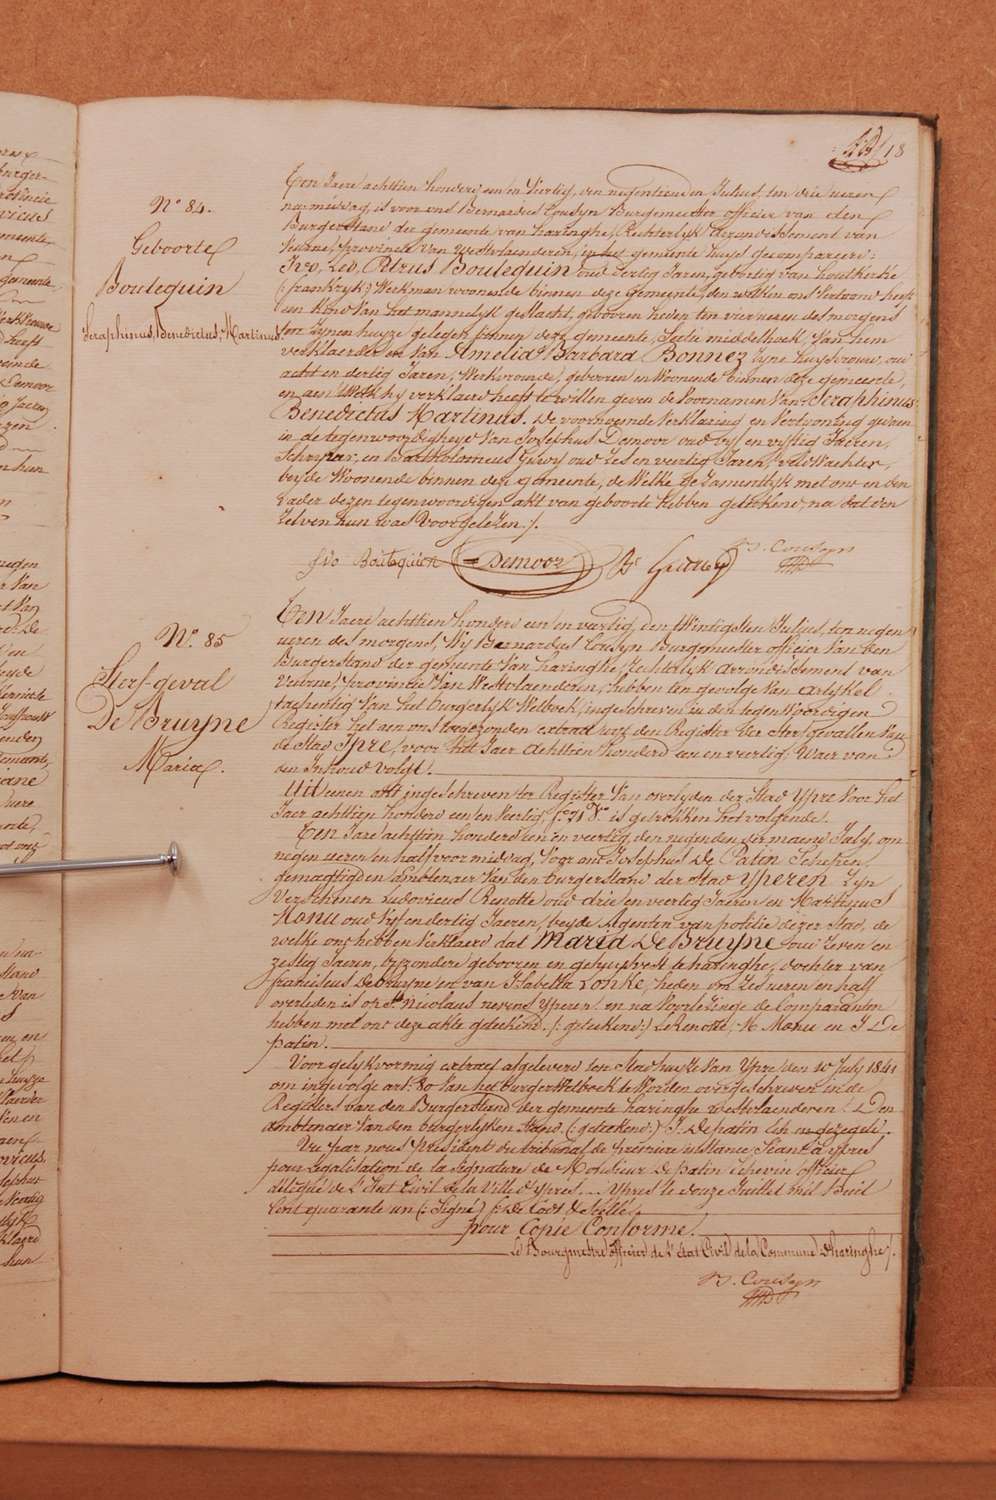 18
N° 84.
Geboorte
Bouteguin
Seraphinus, Benedictus, Martinus.
Ten Jaere achttien honderd een en Veertig, den negentienden Julius, ten drie ueren
na middag, is voor ons Bernardus Cousyn Burgemeester officier van den
Burgerstand der gemeente van haringhe, Rechterlyk Arrondissement van
Veurne, provincie van Westvlaenderen, in het gemeente huys gecompareerd:
Ivo, Leo, Petrus Bouteguin oud dertig Jaren, gebortig van houtkerke
(frankryk) Werkman woonende binnen deze gemeente, den welken ons Vertoond heeft
een Kind Van het mannelyk geslacht, gebooren heden ten vier ueren des morgens
ten zynen huyze gelegen binnen deze gemeente, Sectie middelhoek, Van hem
verklaerder en Van Amelia Barbara Bonnez zyne huysvrouw, oud
acht en dertig Jaren, Werkvrouwe, gebooren en Woonende binnen deze gemeente,
en aen Welk hy verklaerd heeft te willen geven de Voornamen Van Seraphinus
Benedictus Martinus. De voornoemde Verklaring en Vertooning gedaen
in de tegenwoordigheyd Van Josephus Demoor oud vyf en vyftig Jaeren,
Schryver, en Bartholomeus Guwy oud zes en veertig Jaren, veldWachter,
beyde Woonende binnen deze gemeente, de Welke te zamentlyk met ons en den
vader dezen tegenwoordigen akt van geboorte hebben geteekend, na dat den
zelven hun was Voorgelezen /.
Ivo Bouteguien Demoor Br Guwy B. Cousyn
N° 85
Sterf-geval
De Bruyne
Maria.
Ten Jaere achttien honderd een en veertig, den twintigsten Julius, ten negen
ueren des morgens, Wy Bernardus Cousyn Burgemeester officier Van den
Burgerstand der gemeente Van haringhe, Rechterlyk arrondissement van
Veurne, provincie Van Westvlaenderen, hebben ten gevolge van artykel
tachentig Van het Burgerlyk Wetboek, ingeschreven in den tegenWoordigen
Register het aen ons toegezonden extract uyt den Register der sterfgevallen Van
de Stad Ipre, voor het Jaer achttien honderd een en veertig, Waer van
den Inhoud volgt.
Uit eenen akt ingeschreven ter Register Van overlyden der Stad Ypre Voor het
Jaer achttien honderd een en Veertig, f° 71 V° is getrokken het volgende.
Ten Jare achttien honderd een en veertig den negenden der maend July, om
negen ueren en half voor middag, Voor ons Josephus De Patin Schepen,
gemagtigden amblenaer Van den burgerstand der Stad Yperen zyn
Verschenen Ludovicus Renotte oud drie en veertig Jaeren en Martinus
Monu oud vyf en dertig Jaeren, beyde Agenten van politie dezer Stad, de
welke ons hebben Verklaerd dat Maria De Bruyne oud Zeven en
zestig Jaeren, byzondere gebooren en gehuysvest te haringhe, dochter van
franciscus Debruyne en van Isabella Lonke, heden om zes ueren en half
overleden is op St Nicolaus nevens Yperen: en na Voorlezinge de Comparanten
hebben met ons deze akte geteekend. (: geteekend:) L Renotte, M Monu en J De
patin.
Voor gelykvormig extract afgeleverd ten Stadhuyse Van Ypre den 10 July 1841
om ingevolge art: 80 Van het burgerWetboek te Worden overgeschreven in de
Registers van den Burgerstand der gemeente haringhe Westvlaenderen! Den
amblenaer Van den burgerlyken Stand (: geteekend:) J: De patin Sch en gezegeld.
Vu par nous president du tribunal de premiere instance Séant à Ypres
pour légalisation de la signature de Monsieur De patin échevin officier
délégué de l'état Civil de la Ville d'Ypres. _ Ypres le douze Juillet mil huit
cent quarante un (: Signé) De Codt & Scellé.
pour Copie Conforme.
Le Bourgmestre officier de l'état Civil de la Commune d'haringhe /.
B. Cousyn